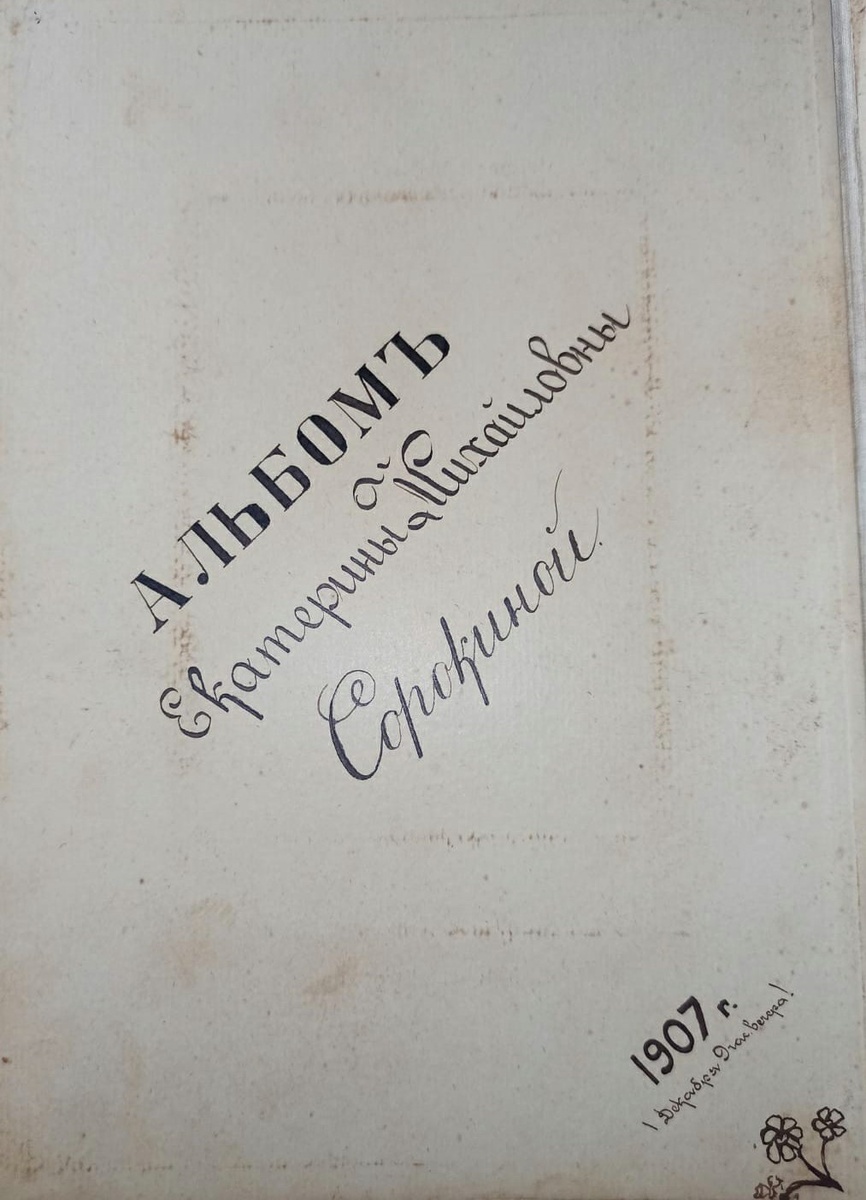 АЛЬБОМЪ
Екатерины Михайловны
Сорокиной.
1907 г.
1 Декабря 9 час. вечера!